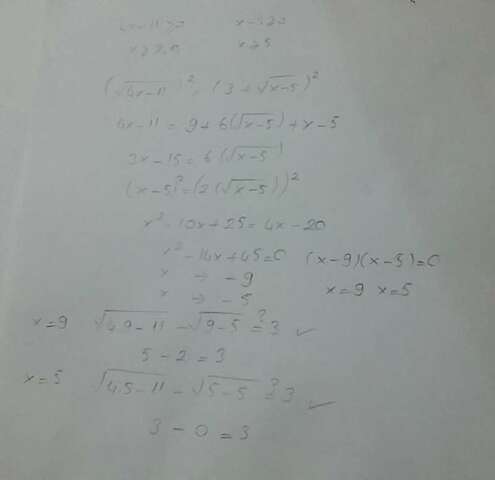 4x-11≥0 x-5≥0
x≥ x≥5
(√4x-11)² = (3+√x-5)²
4x-11 = 9+6(√x-5)+x-5
3x-15=6(√x-5)
(x-5)²=(2(√x-5))²
x²-10x+25=4x-20
x²-14x+45=0 (x-9)(x-5)=0
x → -9 x=9 x=5
x → -5
x=9 √4.9-11 -√9-5 ?= 3 ✓
5-2=3
x=5 √4.5-11 -√5-5 ?= 3 ✓
3-0=3